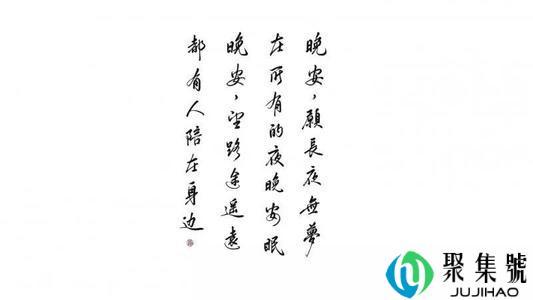 晚安，願長夜無夢
在所有的夜晚安眠
晚安，望路途遥遠
都有人陪在身边
聚集號
JUJIHAO